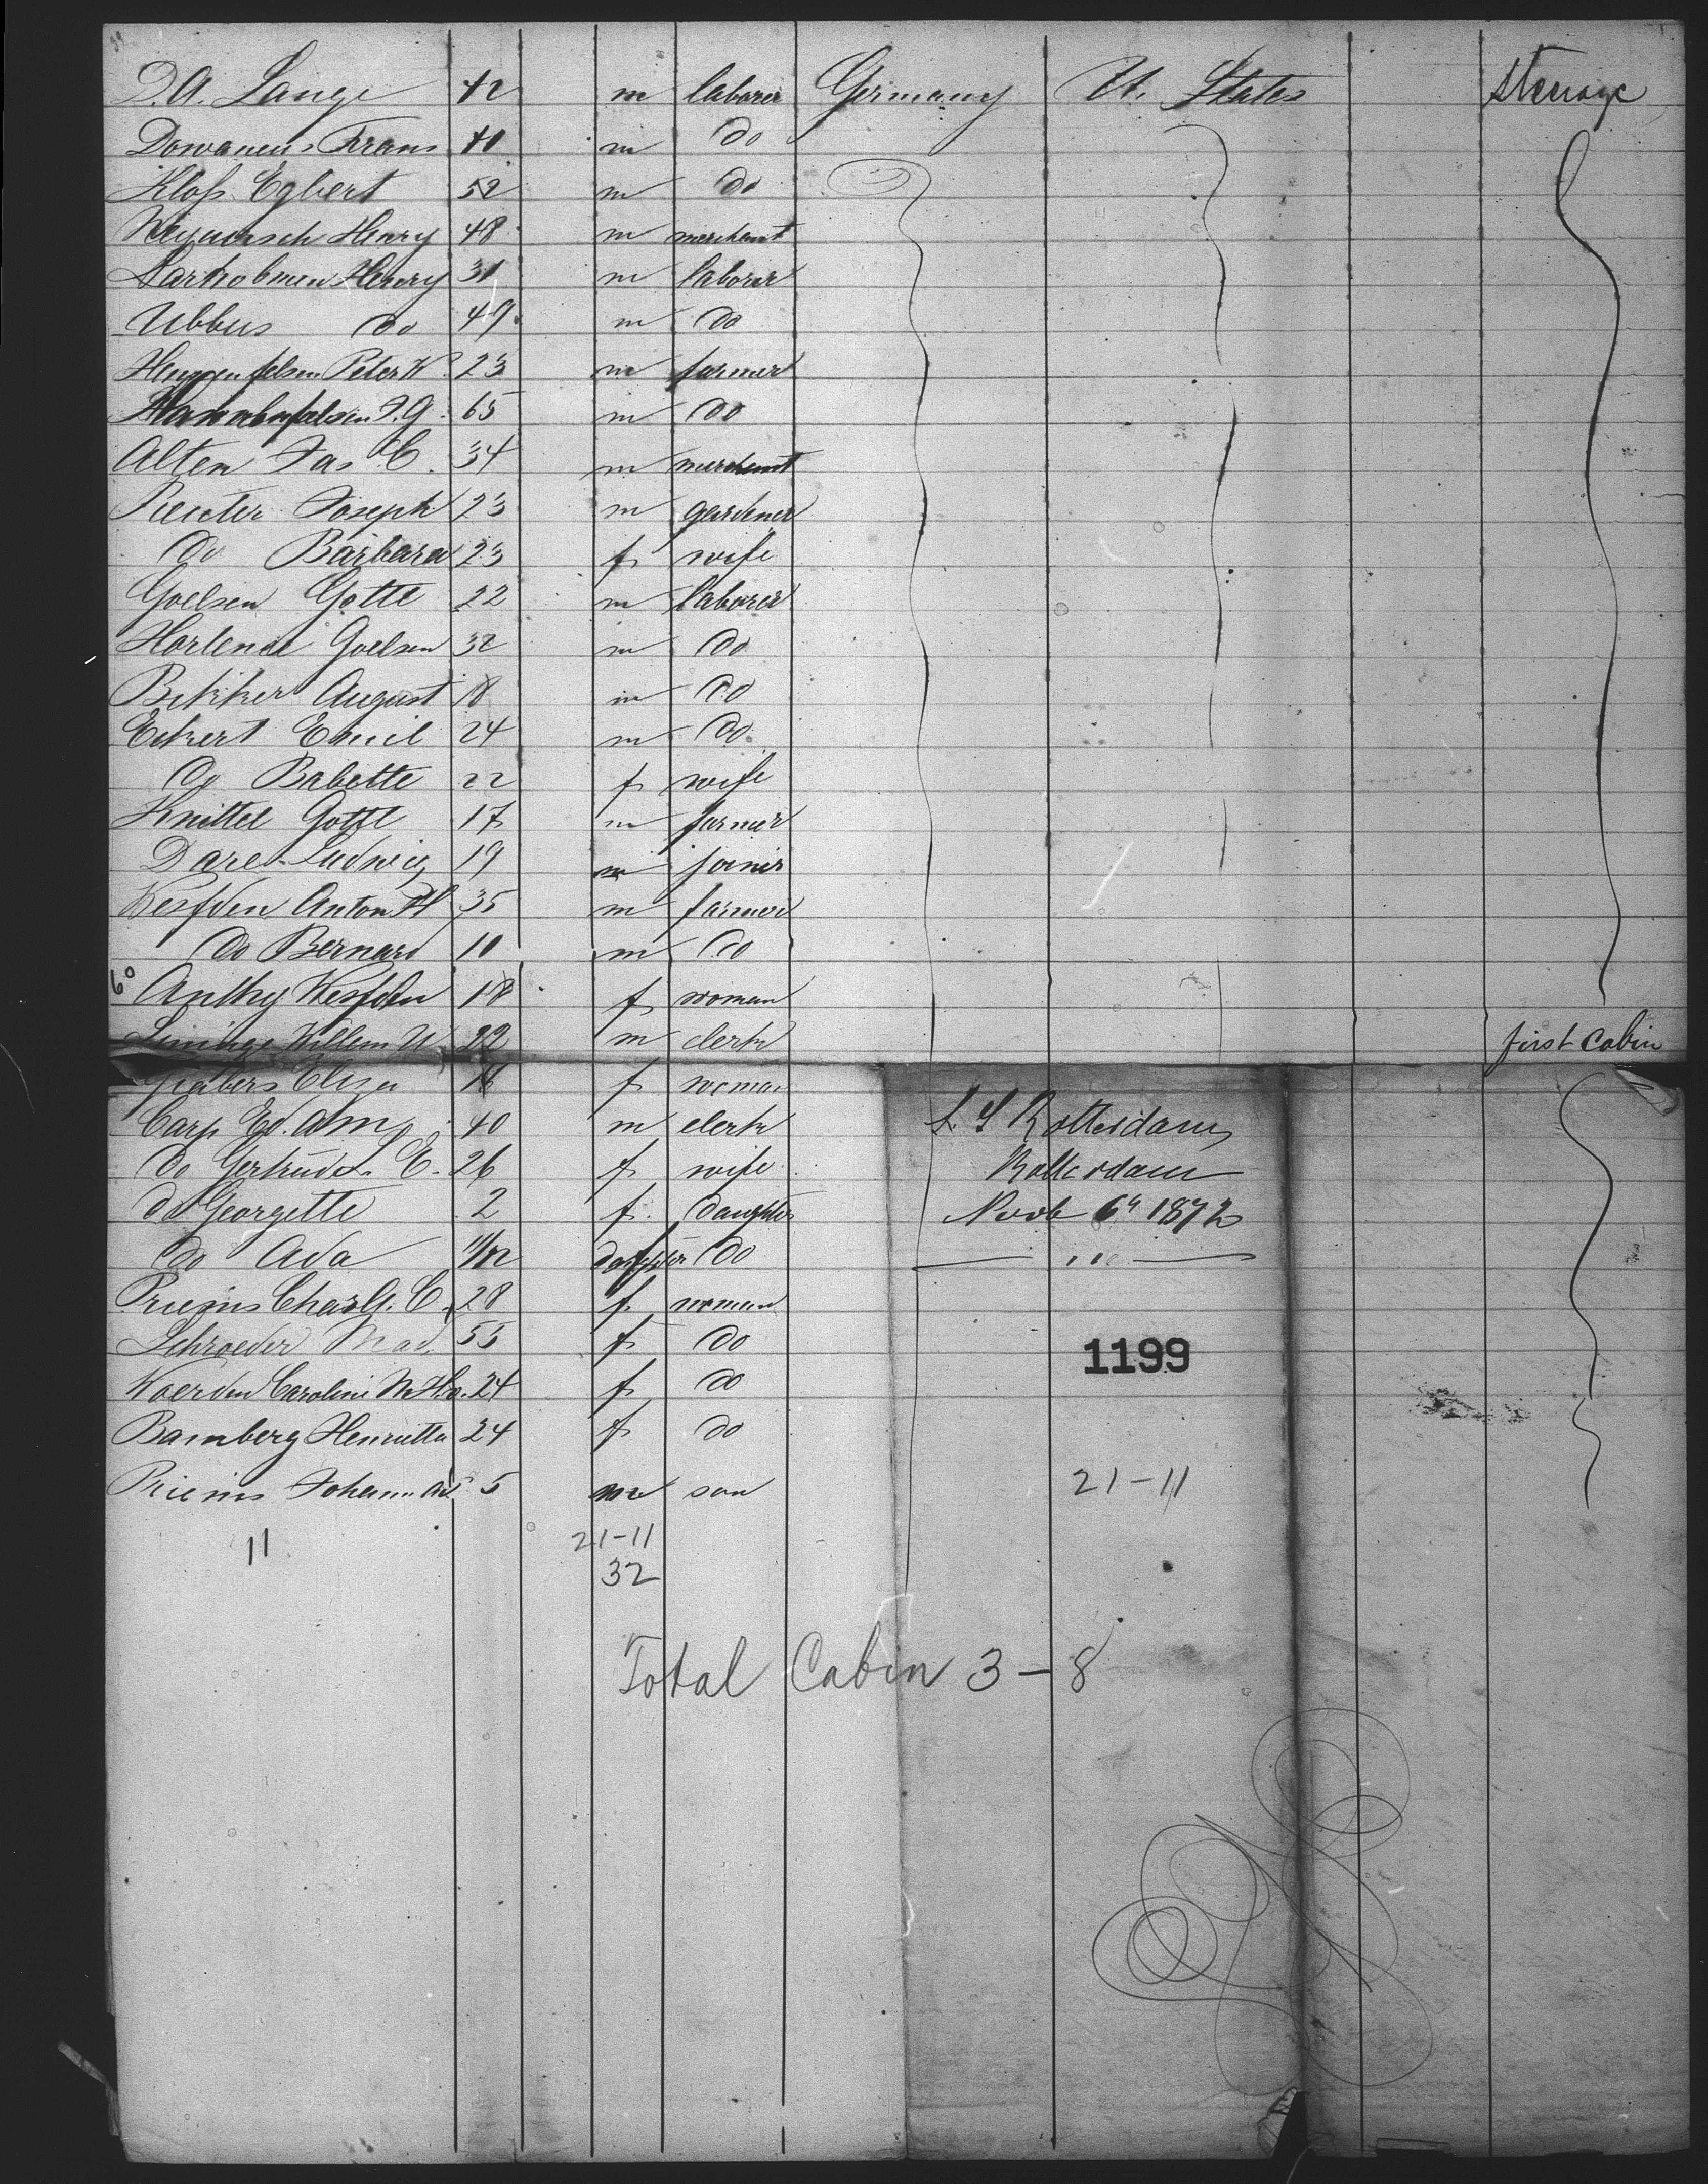 D. A. Lange 42 m laborer Germany U. States Steerage
Dowaneus Frans 40 m do
Kloss Egbert 52 m do
Henry 48 m merchant
Henry 31 m laborer
Ubbus do 49 m do
Peter K. 23 m farmer
J. G. 65 m do
Alten Jas C. 34 m merchant
Reuter Joseph 23 m gardener
do Barbara 23 f wife
Goelsen Gotte 22 m laborer
Goelsen 32 m do
Bekker August 18 m do
Eckert Emil 24 m do
do Babette 22 f wife
Knittel Gottl 17 m farmer
Dare Ludwig 19 m joiner
Wessden Anton H 35 m farmer
do Bernard 10 m do
60 Anthy Wessden 18 f woman
Willem U 22 m clerk first Cabin
Eliza f woman
Carp Ed. 40 m clerk S. S Rotterdam
do Gertrude E. 26 f wife Rotterdam
do Georgette 2 f. daughter Novb 6th 1872
do Ada 11/12 daughter do
Priems C. 28 f woman
Schroeder Mad. 55 f do 1199
Woerden Caroline 24 f do
Bamberg Henrietta 24 f do
Priems Johann 5 m son 21-11
11 21-11
32
Total Cabin 3-8